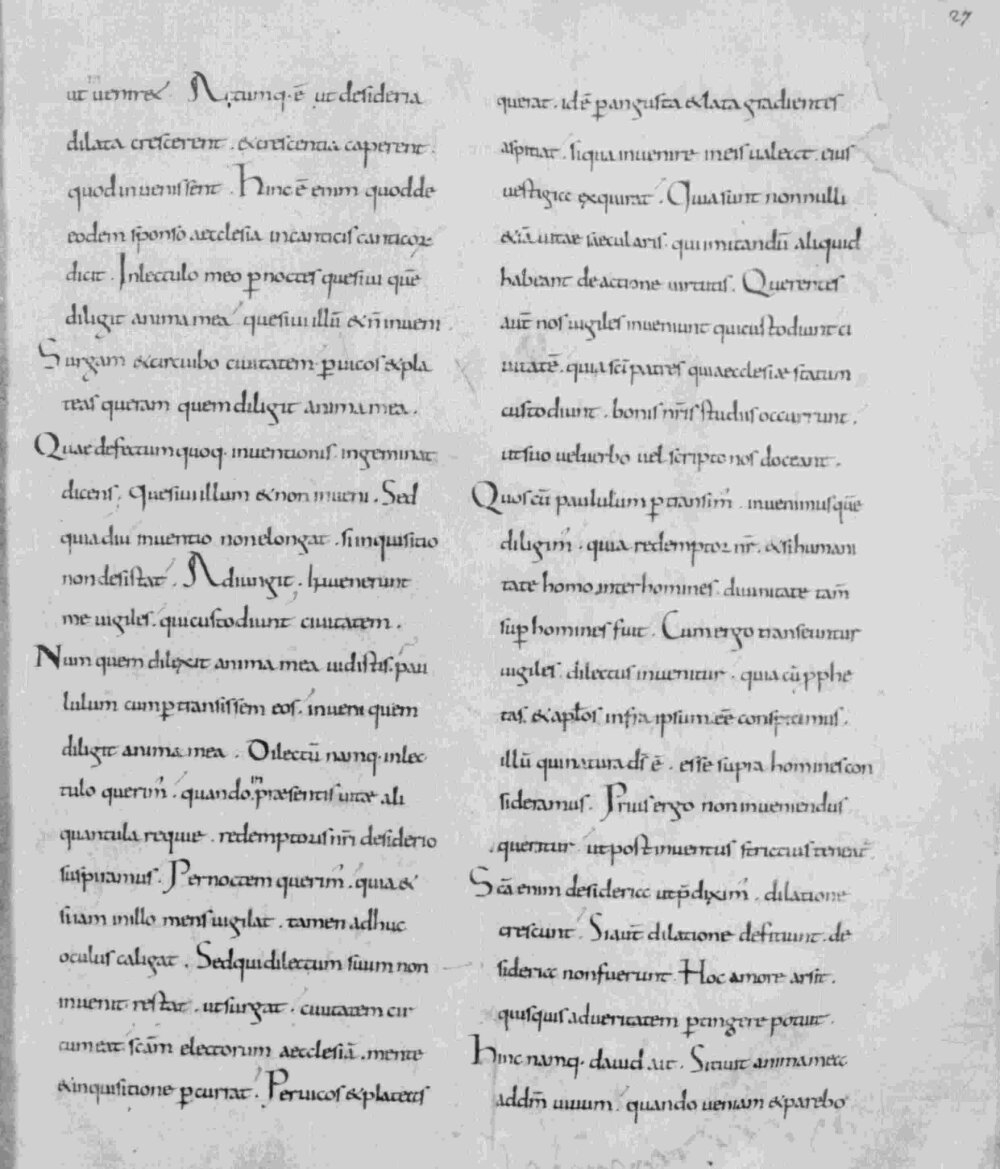 27
ut uenir&. Actumq· ē ut desideria
dilata crescerent. & crescentia caperent.
quod inuenissent. Hinc ē enim quod de
eodem sponso aecclesia in canticis canticoꝝ
dicit. In lectulo meo ꝑ noctes quesiui quē
diligit anima mea quesiui illū & ñ inueni.
Surgam & circuibo ciuitatem· ꝑ uicos & pla
teas queram quem diligit anima mea.
Quae defectum quoq· inuentionis. ingeminat
dicens. Quesiui illum & non inueni. Sed
quia diu inuentio non elongat. si inquisitio
non desistat. Adiungit. Inuenerunt
me uigiles. qui custodiunt ciuitatem.
Num quem dilexit anima mea uidistis. pau
lulum cum ꝑtransissem eos. inueni quem
diligit anima mea. Dilectū namq· in lec
tulo querim̄. quando in praesentis uitae ali
quantula requie. redemptoris nr̄i desiderio
suspiramus. Per noctem querim̄. quia &
si iam in illo mens uigilat. tamen adhuc
oculus caligat. Sed qui dilectum suum non
inuenit restat. ut surgat. ciuitatem cir
cumeat. scām electorum aecclesiā. mente
& inquisitione ꝑcurrat. Per uicos & plateas
querat. id ē ꝑ angusta & lata gradientes
aspiciat. si qua inuenire in eis ualeat. eius
uestigia exquirat. Quia sunt nonnulli
&iā uitae saecularis. qui imitandū aliquid
habeant de actione uirtutis. Querentes
aut̄ nos uigiles inueniunt qui custodiunt ci
uitatē. quia sc̄i patres qui aecclesiae statum
custodiunt. bonis nr̄is studiis occurrunt.
ut suo uel uerbo uel scripto nos doceant.
Quos cū paululum ꝑtransim̄. inuenimus quē
diligim̄. quia redemptor nr̄. & si humani
tate homo inter homines. diuinitate tam̄
suꝑ homines fuit. Cum ergo transeuntur
uigiles. dilectus inuenitur. quia cū pphe
tas. & aptos infra ipsum. eē conspicimus.
illū qui natura ds̄ ē. esse supra homines con
sideramus. Prius ergo non inueniendus
queritur. ut post inuentus strictius teneat̄.
Scā enim desideria ut p̄dixim̄. dilatione
crescunt. Si aut̄ dilatione deficiunt. de
sideria non fuerunt. Hoc amore arsit.
quisquis ad ueritatem ꝑtingere potuit.
Hinc namq· dauid ait. Sitiuit anima mea
ad dm̄ uiuum. quando ueniam & parebo